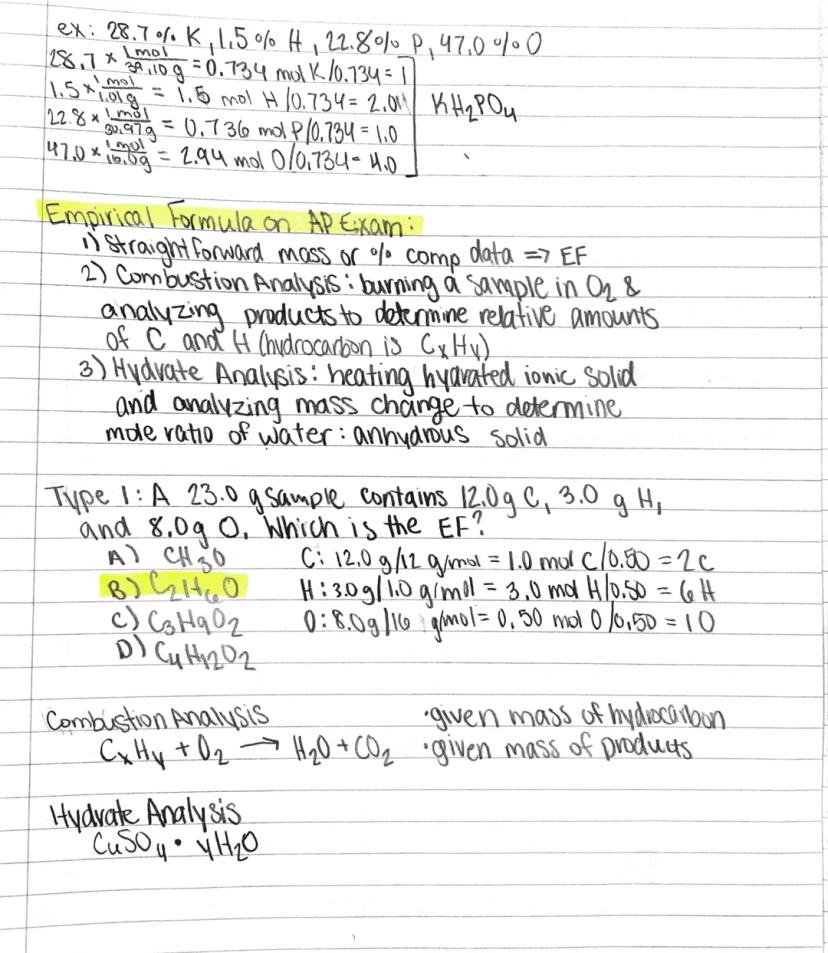 ex: 28.7% K, 1.5% H, 22.8% P, 47.0% O
28.7 × 1 mol/39.10 g = 0.734 mol K/0.734 = 1
1.5 × 1 mol/1.01g = 1.5 mol H/0.734 = 2.01
KH₂PO₄
22.8 × 1 mol/30.97g = 0.736 mol P/0.734 = 1.0
47.0 × 1 mol/16.0g = 2.94 mol O/0.734 = 4.0
Empirical Formula on AP Exam:
1) Straightforward mass or % comp data => EF
2) Combustion Analysis: burning a sample in O₂ &
analyzing products to determine relative amounts
of C and H (hydrocarbon is CxHy)
3) Hydrate Analysis: heating hydrated ionic solid
and analyzing mass change to determine
mole ratio of water: anhydrous solid
Type 1: A 23.0 g sample contains 12.0g C, 3.0 g H,
and 8.0g O. Which is the EF?
A) CH₃O C: 12.0 g/12 g/mol = 1.0 mol C/0.50 = 2C
B) C₂H₆O H: 3.0g/1.0 g/mol = 3.0 mol H/0.50 = 6H
C) C₃H₉O₂ O: 8.0g/16 g/mol = 0.50 mol O/0.50 = 1O
D) C₄H₁₂O₂
Combustion Analysis •given mass of hydrocarbon
CxHy + O₂ → H₂O + CO₂ •given mass of products
Hydrate Analysis
CuSO₄ • yH₂O